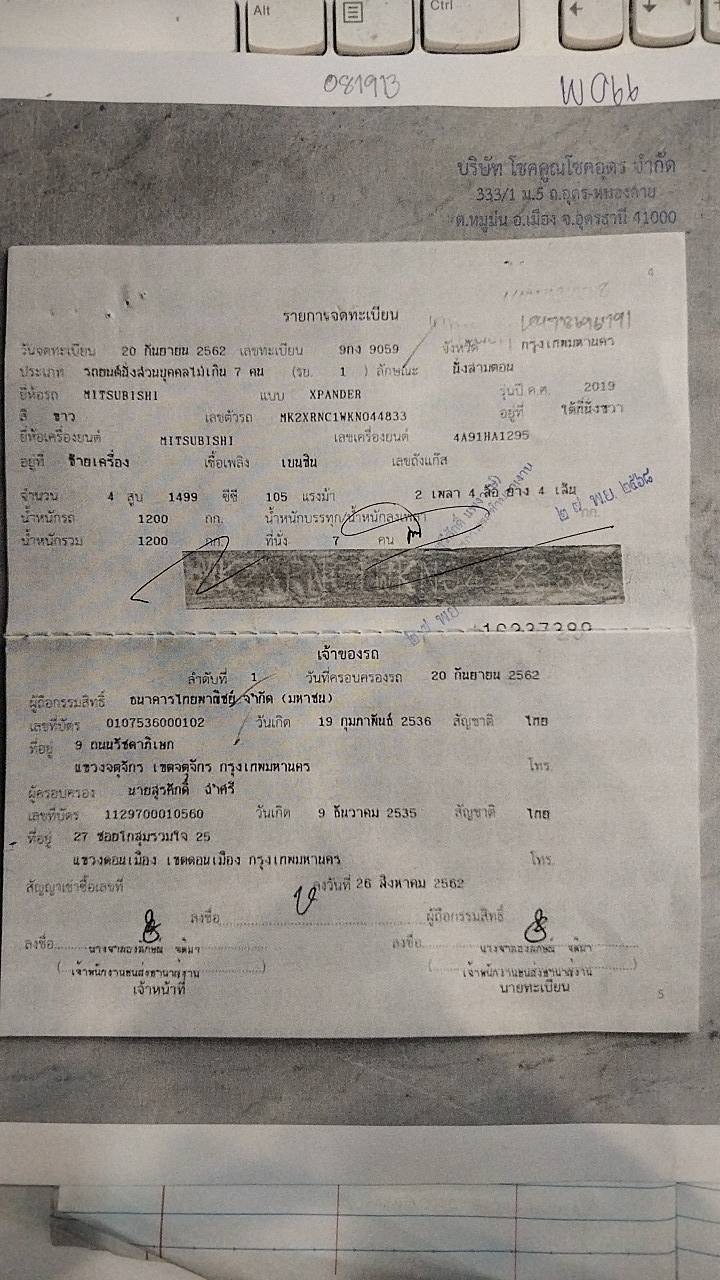 Alt
Ctrl
081913
บริษัท โชคคูณโชคอุดร จำกัด
333/1 ม.5 ถ.อุดร-หนองคาย
ต.หมูม่น อ.เมือง จ.อุดรธานี 41000
4
รายการจดทะเบียน
วันจดทะเบียน 20 กันยายน 2562 เลขทะเบียน 9กง 9059 จังหวัด กรุงเทพมหานคร
ประเภท รถยนต์นั่งส่วนบุคคลไม่เกิน 7 คน (รย. 1 ) ลักษณะ นั่งสามตอน
ยี่ห้อรถ MITSUBISHI แบบ XPANDER รุ่นปี ค.ศ. 2019
สี ขาว เลขตัวรถ MK2XRNC1WKN044833 อยู่ที่ ใต้ที่นั่งขวา
ยี่ห้อเครื่องยนต์ MITSUBISHI เลขเครื่องยนต์ 4A91HA1295
อยู่ที่ ซ้ายเครื่อง เชื้อเพลิง เบนซิน เลขถังแก๊ส
จำนวน 4 สูบ 1499 ซีซี 105 แรงม้า 2 เพลา 4 ล้อ ยาง 4 เส้น
น้ำหนักรถ 1200 กก. น้ำหนักบรรทุก/น้ำหนักลงเพลา กก.
๒๗ พ.ย. ๒๕๖๘
น้ำหนักรวม 1200 กก. ที่นั่ง 7 คน
เจ้าของรถ
ลำดับที่ 1 วันที่ครอบครองรถ 20 กันยายน 2562
ผู้ถือกรรมสิทธิ์ ธนาคารไทยพาณิชย์ จำกัด (มหาชน)
เลขที่บัตร 0107536000102 วันเกิด 19 กุมภาพันธ์ 2536 สัญชาติ ไทย
ที่อยู่ 9 ถนนรัชดาภิเษก
แขวงจตุจักร เขตจตุจักร กรุงเทพมหานคร โทร.
ผู้ครอบครอง นายสุรศักดิ์ ฉ่ำศรี
เลขที่บัตร 1129700010560 วันเกิด 9 ธันวาคม 2535 สัญชาติ ไทย
ที่อยู่ 27 ซอยโกสุมรวมใจ 25
แขวงดอนเมือง เขตดอนเมือง กรุงเทพมหานคร โทร.
สัญญาเช่าซื้อเลขที่ ลงวันที่ 26 สิงหาคม 2562
ลงชื่อ ผู้ถือกรรมสิทธิ์
ลงชื่อ ลงชื่อ
(เจ้าพนักงานขนส่งชำนาญงาน) (เจ้าพนักงานขนส่งชำนาญงาน)
เจ้าหน้าที่ นายทะเบียน
5